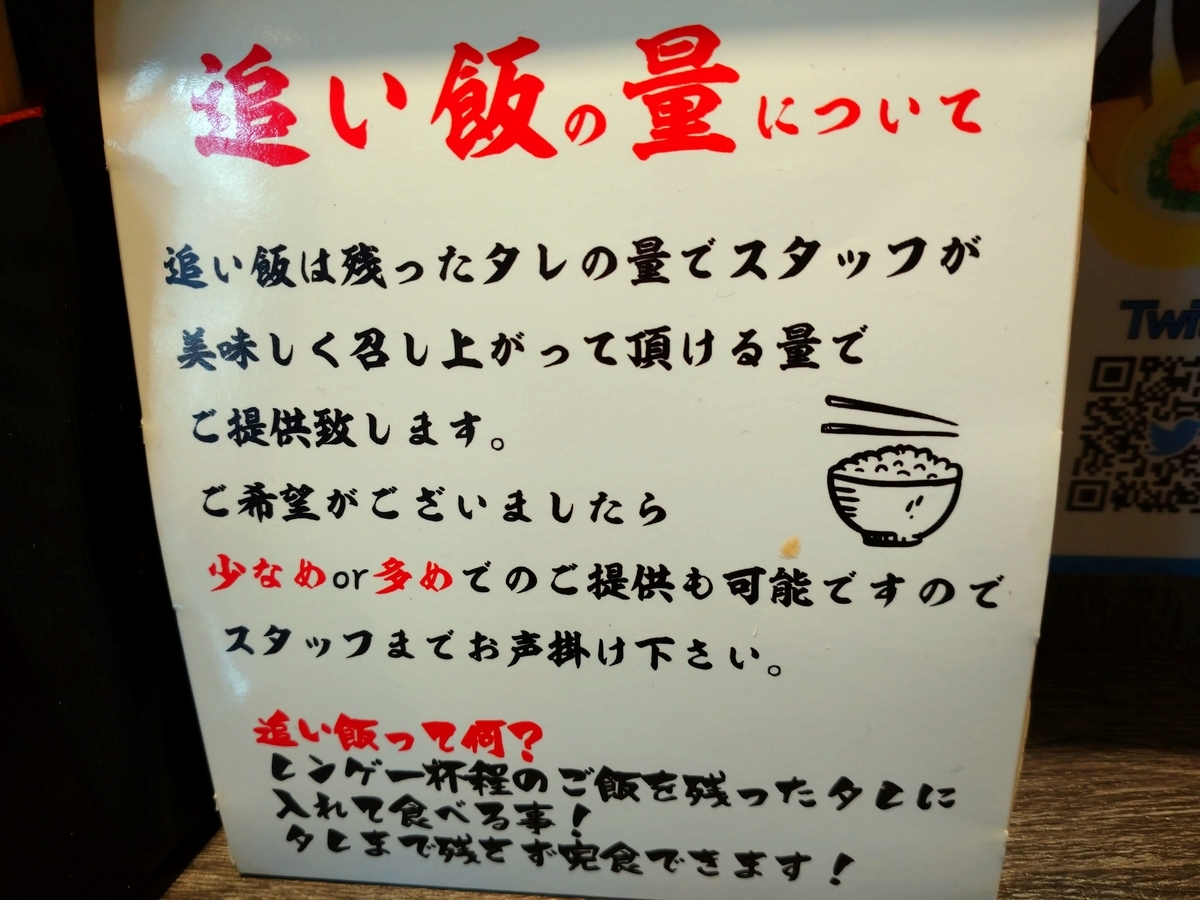 追い飯の量について
追い飯は残ったタレの量でスタッフが
美味しく召し上がって頂ける量で
ご提供致します。
ご希望がございましたら
少なめor多めでのご提供も可能ですので
スタッフまでお声掛け下さい。
追い飯って何?
レンゲ一杯程のご飯を残ったタレに
入れて食べる事!
タレまで残さず完食できます!